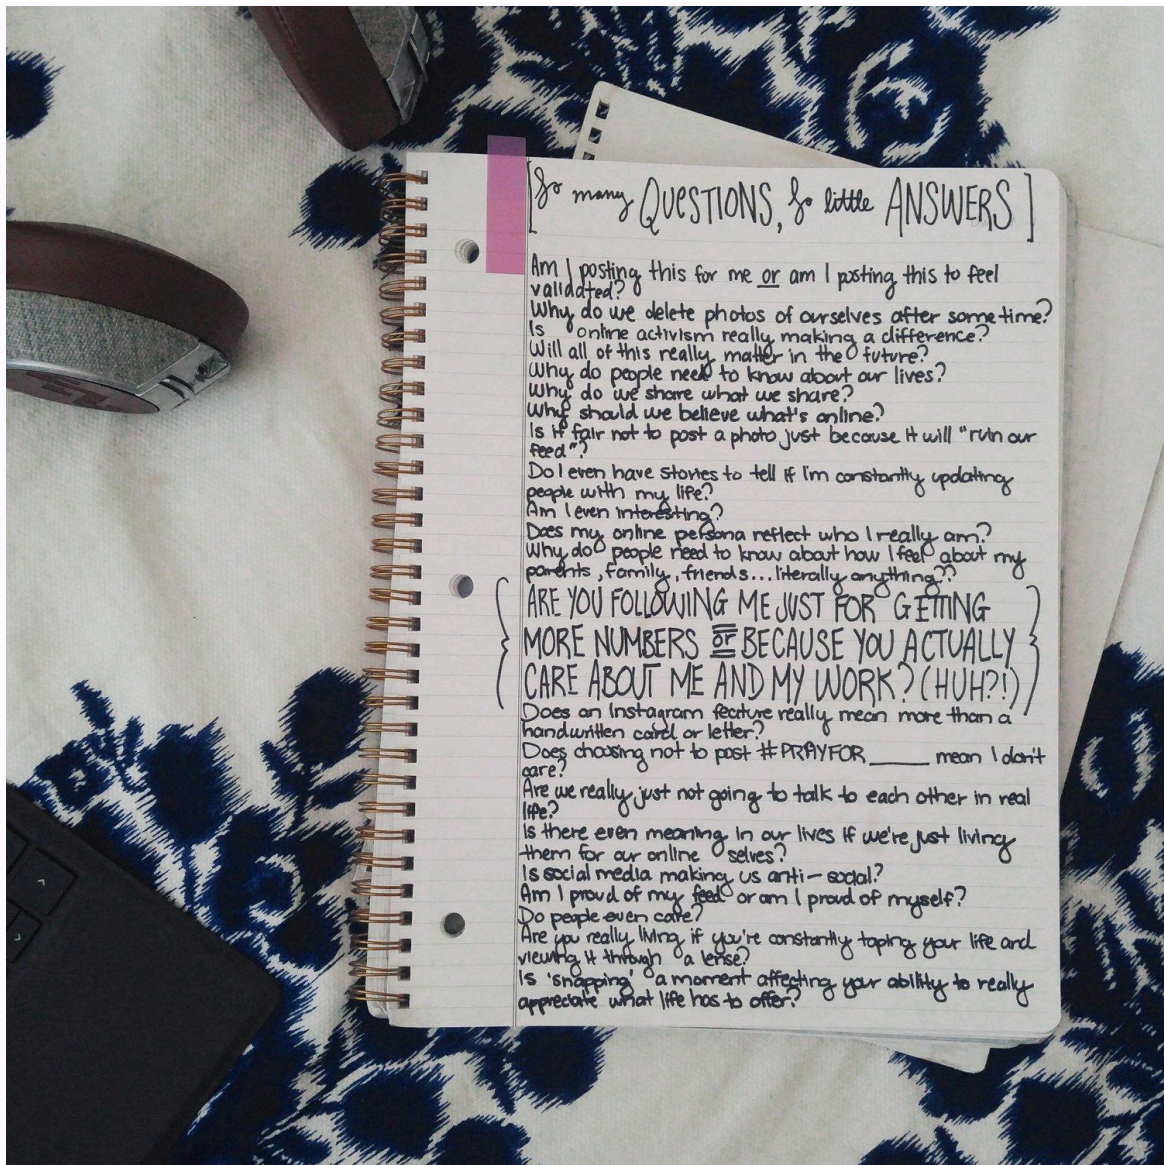 [So many QUESTIONS, So little ANSWERS]
Am I posting this for me or am I posting this to feel
validated?
Why do we delete photos of ourselves after some time?
Is online activism really making a difference?
Will all of this really matter in the future?
Why do people need to know about our lives?
Why do we share what we share?
Why should we believe what's online?
Is it fair not to post a photo just because it will "ruin our
feed"?
Do I even have stories to tell if I'm constantly updating
people with my life?
Am I even interesting?
Does my online persona reflect who I really am?
Why do people need to know about how I feel about my
parents, family, friends...literally anything??
{ARE YOU FOLLOWING ME JUST FOR GETTING
MORE NUMBERS or BECAUSE YOU ACTUALLY
CARE ABOUT ME AND MY WORK? (HUH?!)}
Does an Instagram feature really mean more than a
handwritten card or letter?
Does choosing not to post #PRAYFOR_____ mean I don't
care?
Are we really just not going to talk to each other in real
life?
Is there even meaning in our lives if we're just living
them for our online selves?
Is social media making us anti-social?
Am I proud of my feed or am I proud of myself?
Do people even care?
Are you really living if you're constantly taping your life and
viewing it through a lense?
Is 'snapping' a moment affecting your ability to really
appreciate what life has to offer?